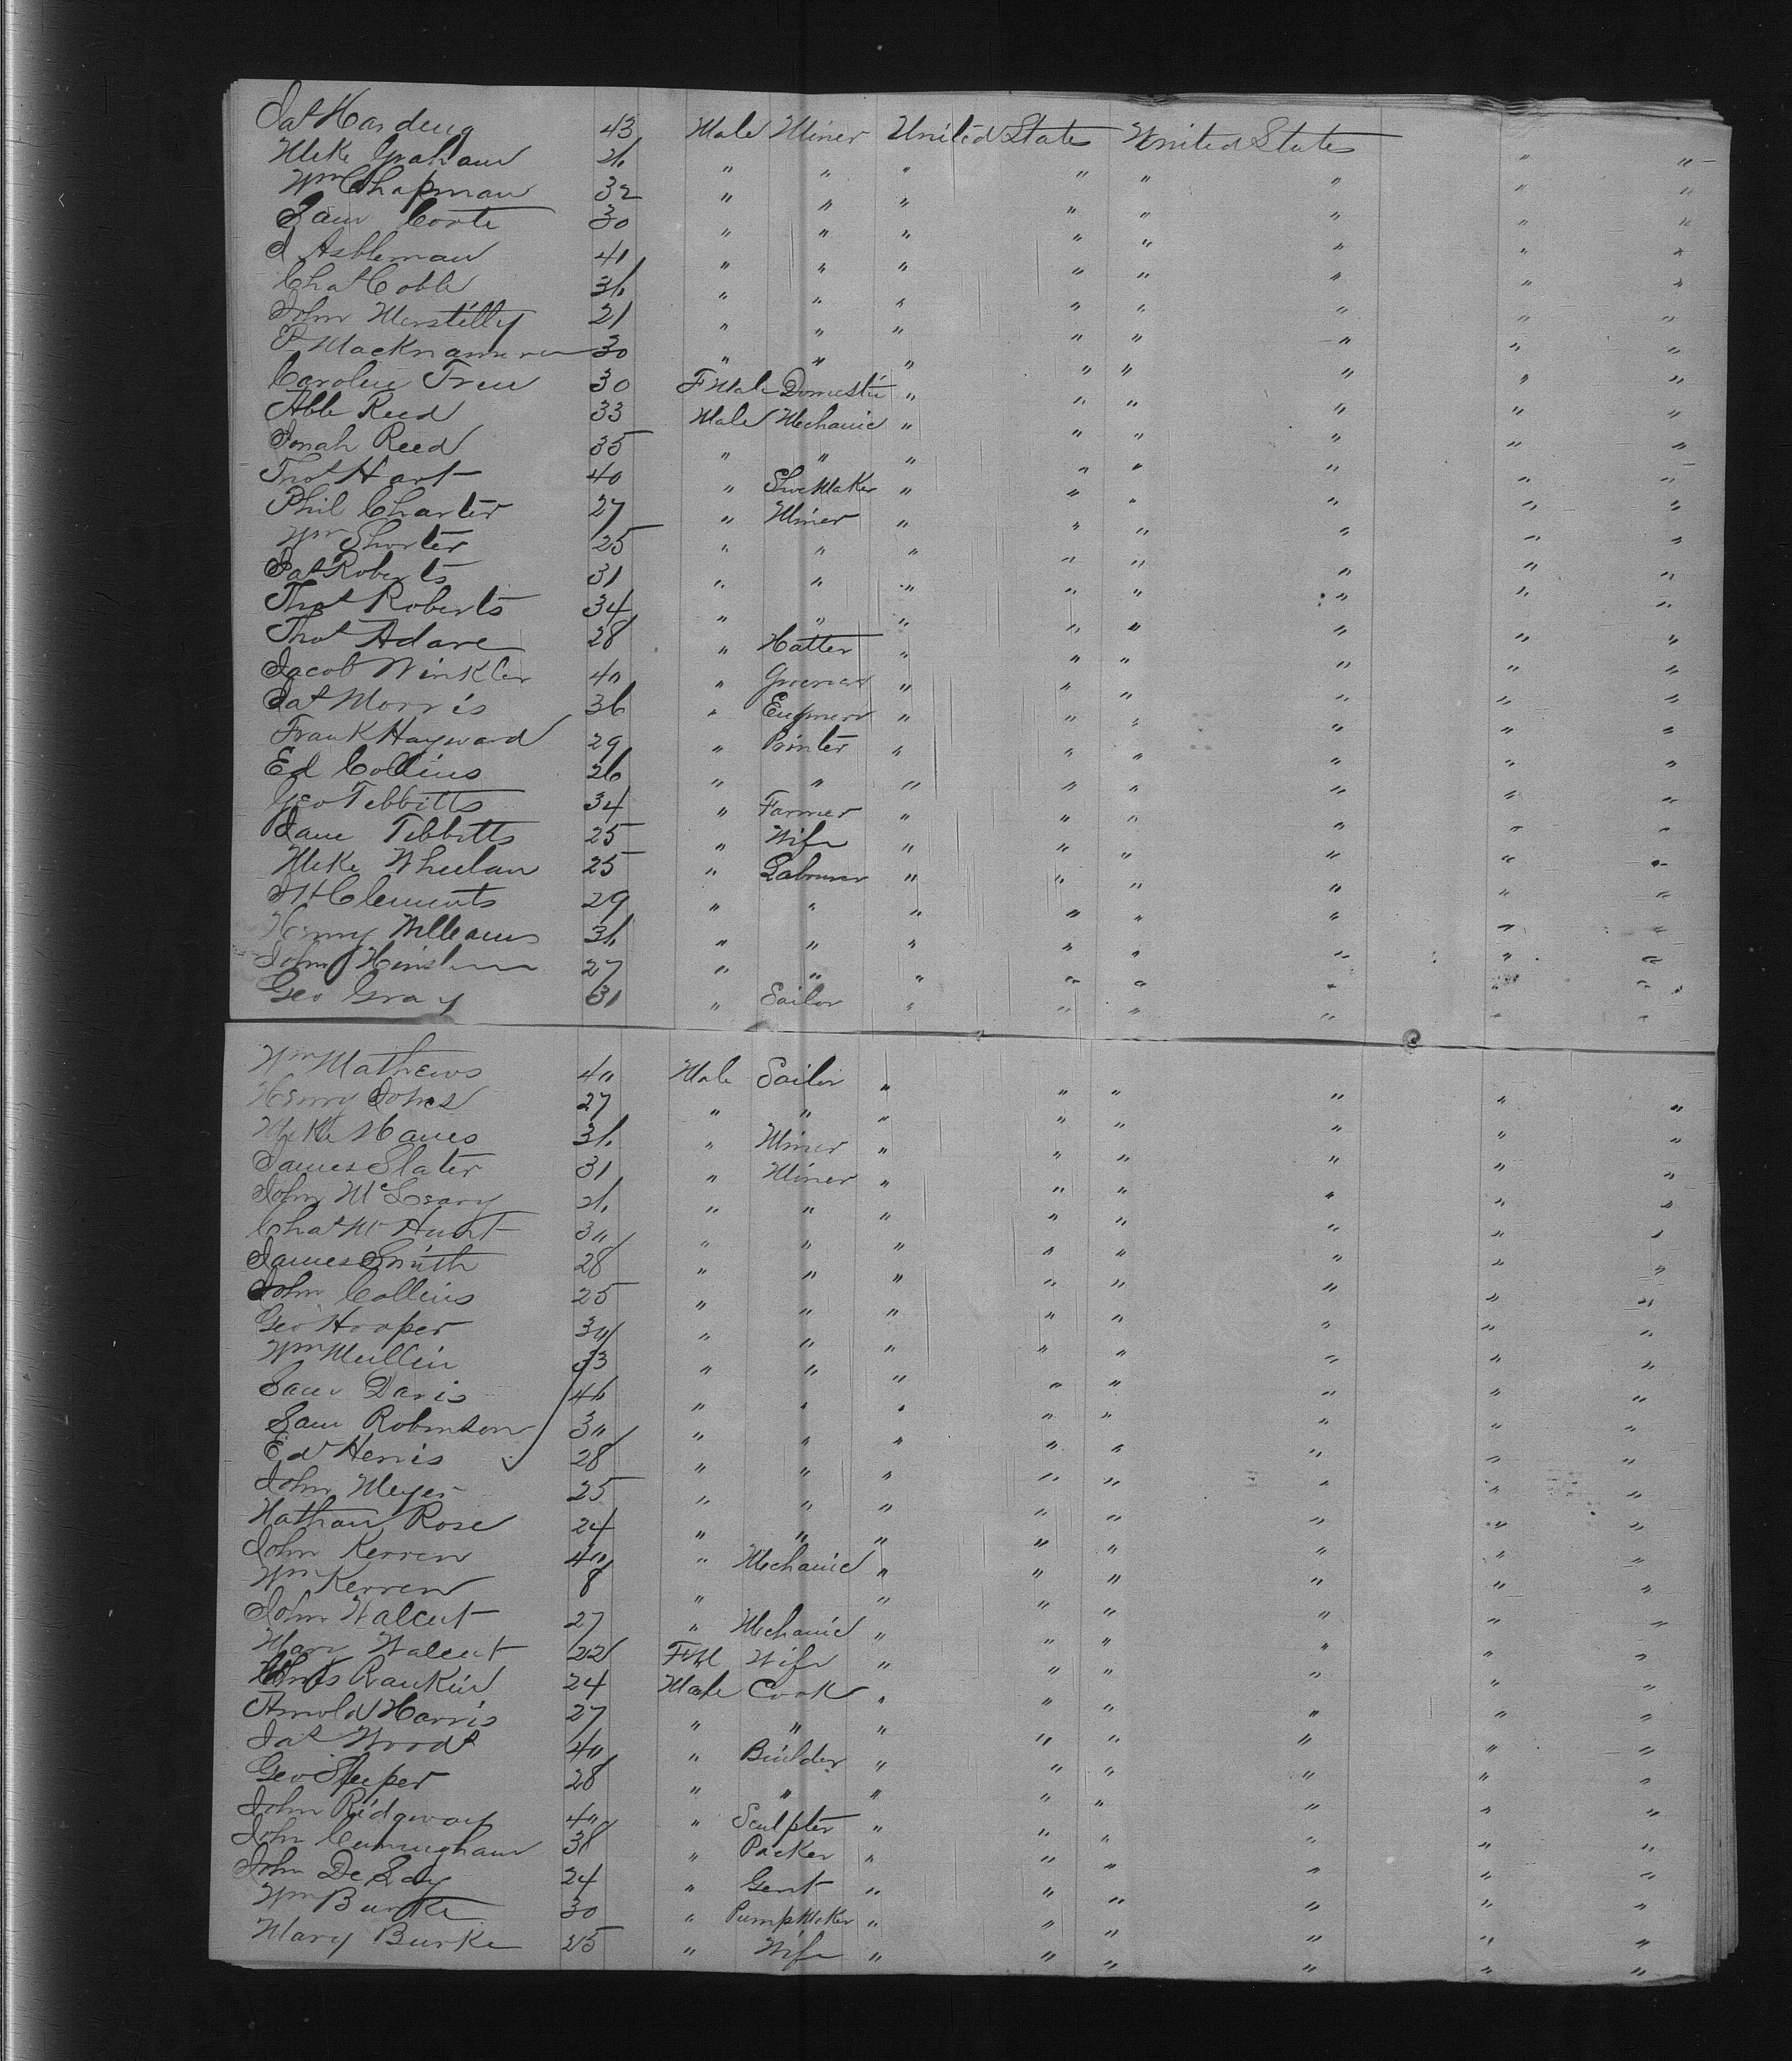 Jas Harding 43 Male Miner United States United States " "
Mike Graham 26 " " " " " " " "
Wm Chapman 32 " " " " " " " "
Sam Coots 30 " " " " " " " "
J Ashleman 41 " " " " " " " "
Chas Coble 36 " " " " " " " "
John 21 " " " " " " " "
P Macknamara 30 " " " " " " " "
Caroline True 30 F Male Domestic " " " " " "
Able Reed 33 Male Mechanic " " " " " "
Jonah Reed 35 " " " " " " " "
Thos Hart 40 " Shoe Maker " " " " " "
Phil Charter 27 " Miner " " " " " "
Wm Shorter 25 " " " " " " " "
Jas Roberts 31 " " " " " " " "
Thos Roberts 34 " " " " " " " "
Thos Adare 28 " Hatter " " " " " "
Jacob Winkler 40 " " " " " " "
Jas Morris 36 " Engineer " " " " " "
Frank Hayward 29 " Printer " " " " " "
Ed Collins 26 " " " " " " " "
Geo Tebbitts 34 " Farmer " " " " " "
Jane Tebbitts 25 " Wife " " " " " "
Mike Wheelan 25 " Labourer " " " " " "
J H Clements 29 " " " " " " " "
Henry Williams 36 " " " " " " " "
John 27 " " " " " " " "
Geo Gray 31 " Sailor " " " " " "
Wm Mathews 40 Male Sailor " " " " " "
Henry Jones 27 " " " " " " " "
Mike Hanes 36 " Miner " " " " " "
James Slater 31 " Miner " " " " " "
John McLeary 26 " " " " " " " "
Chas W Hunt 30 " " " " " " " "
James Smith 28 " " " " " " " "
John Collins 25 " " " " " " " "
Geo Hooper 30 " " " " " " " "
Wm Mullin 33 " " " " " " " "
Sam Davis 40 " " " " " " " "
Sam Robinson 30 " " " " " " " "
Ed Henis 28 " " " " " " " "
John Meyer 25 " " " " " " " "
Nathan Rose 24 " " " " " " " "
John Kerren 40 " Mechanic " " " " " "
Wm Kerren 8 " " " " " " "
John Walcut 27 " Mechanic " " " " " "
Mary Walcut 22 FM Wife " " " " " "
Rankin 24 Male Cook " " " " " "
Arnold Harris 27 " " " " " " " "
Jas Woods 40 " Builder " " " " " "
Geo Sleeper 28 " " " " " " " "
John Ridgway 40 " Sculpter " " " " " "
John Cunningham 38 " Packer " " " " " "
John De Lay 24 " Gent " " " " " "
Wm Burke 30 " Pump Maker " " " " " "
Mary Burke 25 " Wife " " " " " "